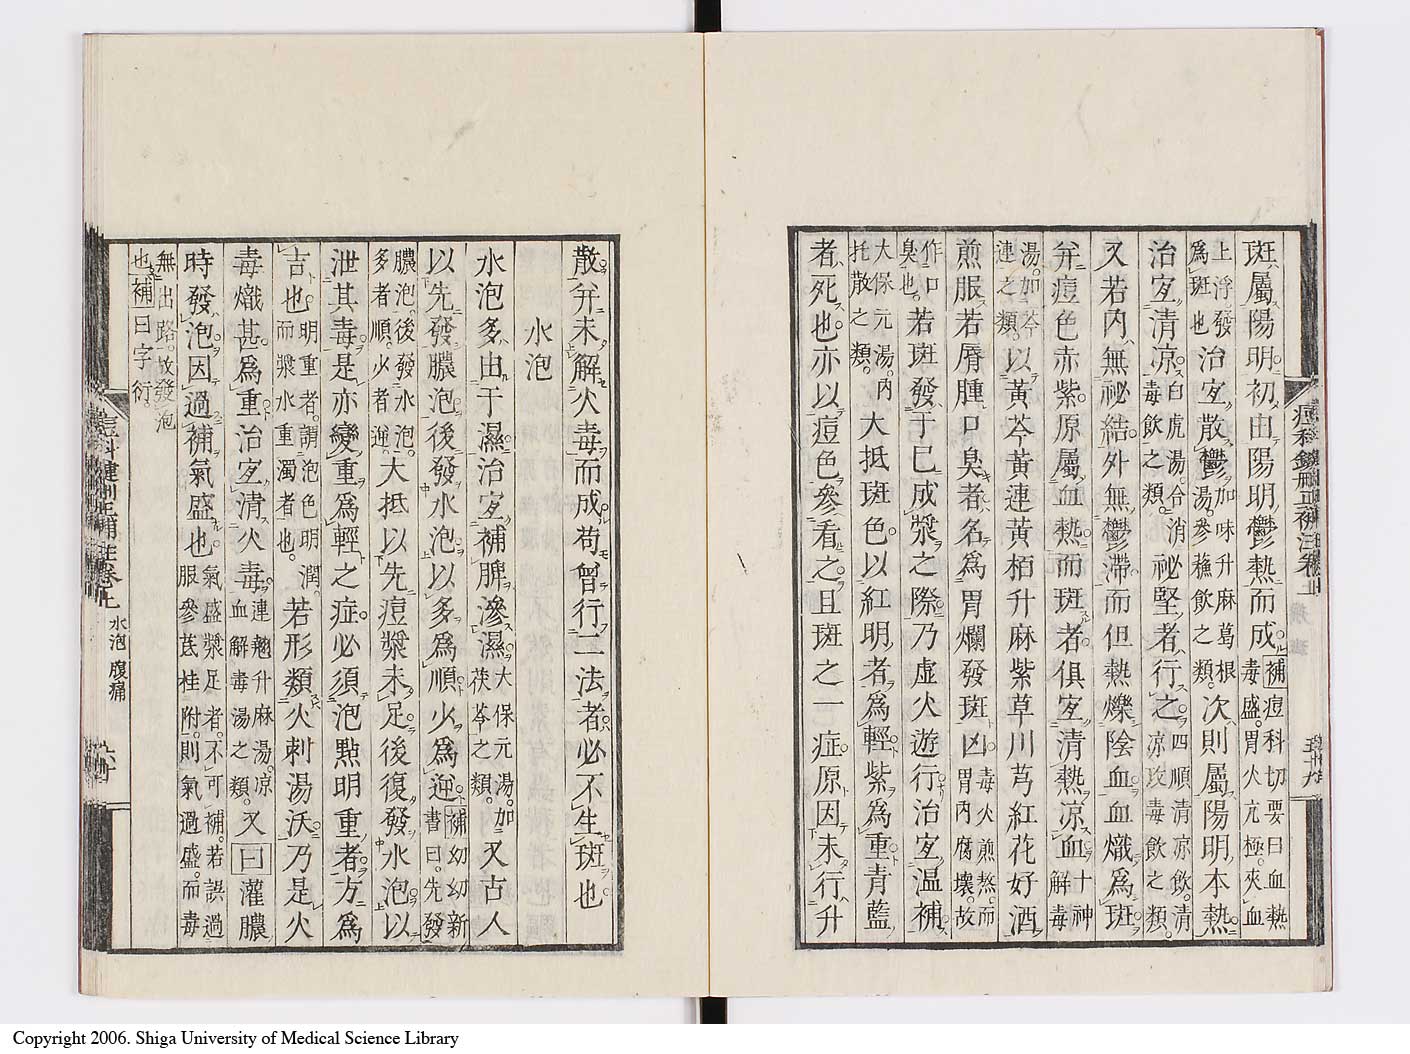 斑屬陽明初由陽明鬱熱而成補痘科切要曰血熱毒盛胃火亢極夾血
上浮發爲斑也治宐散鬱湯加味升麻葛根參蘓飲之類次則屬陽明本熱
治宐清凉白虎湯合消毒飲之類祕堅者行之四順清凉飲清凉攻毒飲之類
又若内無祕結外無鬱滯而但熱爍陰血血熾爲斑
弁痘色赤紫原屬血熱而斑者俱宐清熱凉血十神解毒
湯加芩連之類以黃芩黃連黃栢升麻紫草川芎紅花好酒
煎服若脣腫口臭者名爲胃爛發斑凶毒火煎熬而胃内腐壞故
作口臭也若斑發于已成漿之際乃虚火遊行治宐温補
大保元湯内托散之類大抵斑色以紅明者爲輕紫爲重青藍
者死也亦以痘色參看之且斑之一症原因未行升
散弁未解火毒而成苟曾行二法者必不生斑也
水泡
水泡多由于濕治宐補脾滲濕大保元湯加茯苓之類又古人
以先發膿泡後發水泡以多爲順少爲逆補幼幼新書曰先發
膿泡後發水泡多者順少者逆大抵以先痘漿未足後復發水泡以
泄其毒是亦變重爲輕之症必須泡㸃明重者方爲
吉也明重者謂泡色明潤而漿水重濁者也若形類火刺湯沃乃是火
毒熾甚爲重治宐清火毒連翹升麻湯凉血解毒湯之類又曰灌膿
時發泡因過補氣盛也氣盛漿足者不可補若誤過服參芪桂附則氣過盛而毒
無出路故發泡也補曰字衍
痘科鍵刪正補註卷上
五十九
痘科鍵刪正補註卷上
水泡 腹痛
六十
Copyright 2006. Shiga University of Medical Science Library